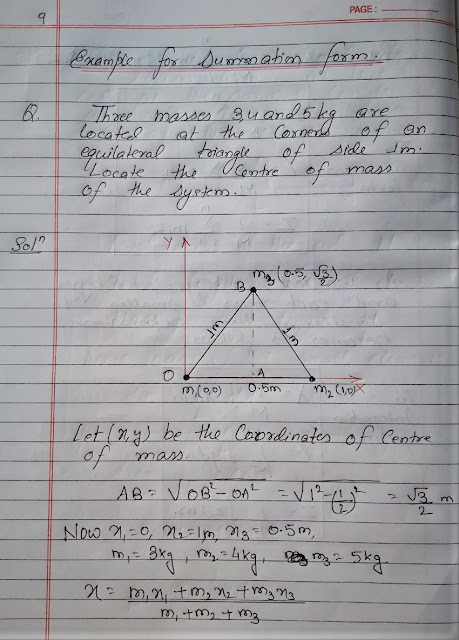 9
PAGE:
Example for Summation form.
Q. Three masses 3,4 and 5 kg are
located at the Corners of an
equilateral triangle of side 1m.
Locate the Centre of mass
of the System.
Solⁿ
Y
m₃ (0.5, √3/2)
B
1m
1m
O
A
m₁(0,0)
0.5m
m₂ (1,0)
X
Let (x,y) be the Coordinates of Centre
of mass.
AB = √OB² - OA² = √1² - (1/2)² = √3/2 m
Now x₁ = 0, x₂ = 1m, x₃ = 0.5m,
m₁ = 3kg, m₂ = 4kg, m₃ = 5kg
x = m₁x₁ + m₂x₂ + m₃x₃ / m₁ + m₂ + m₃